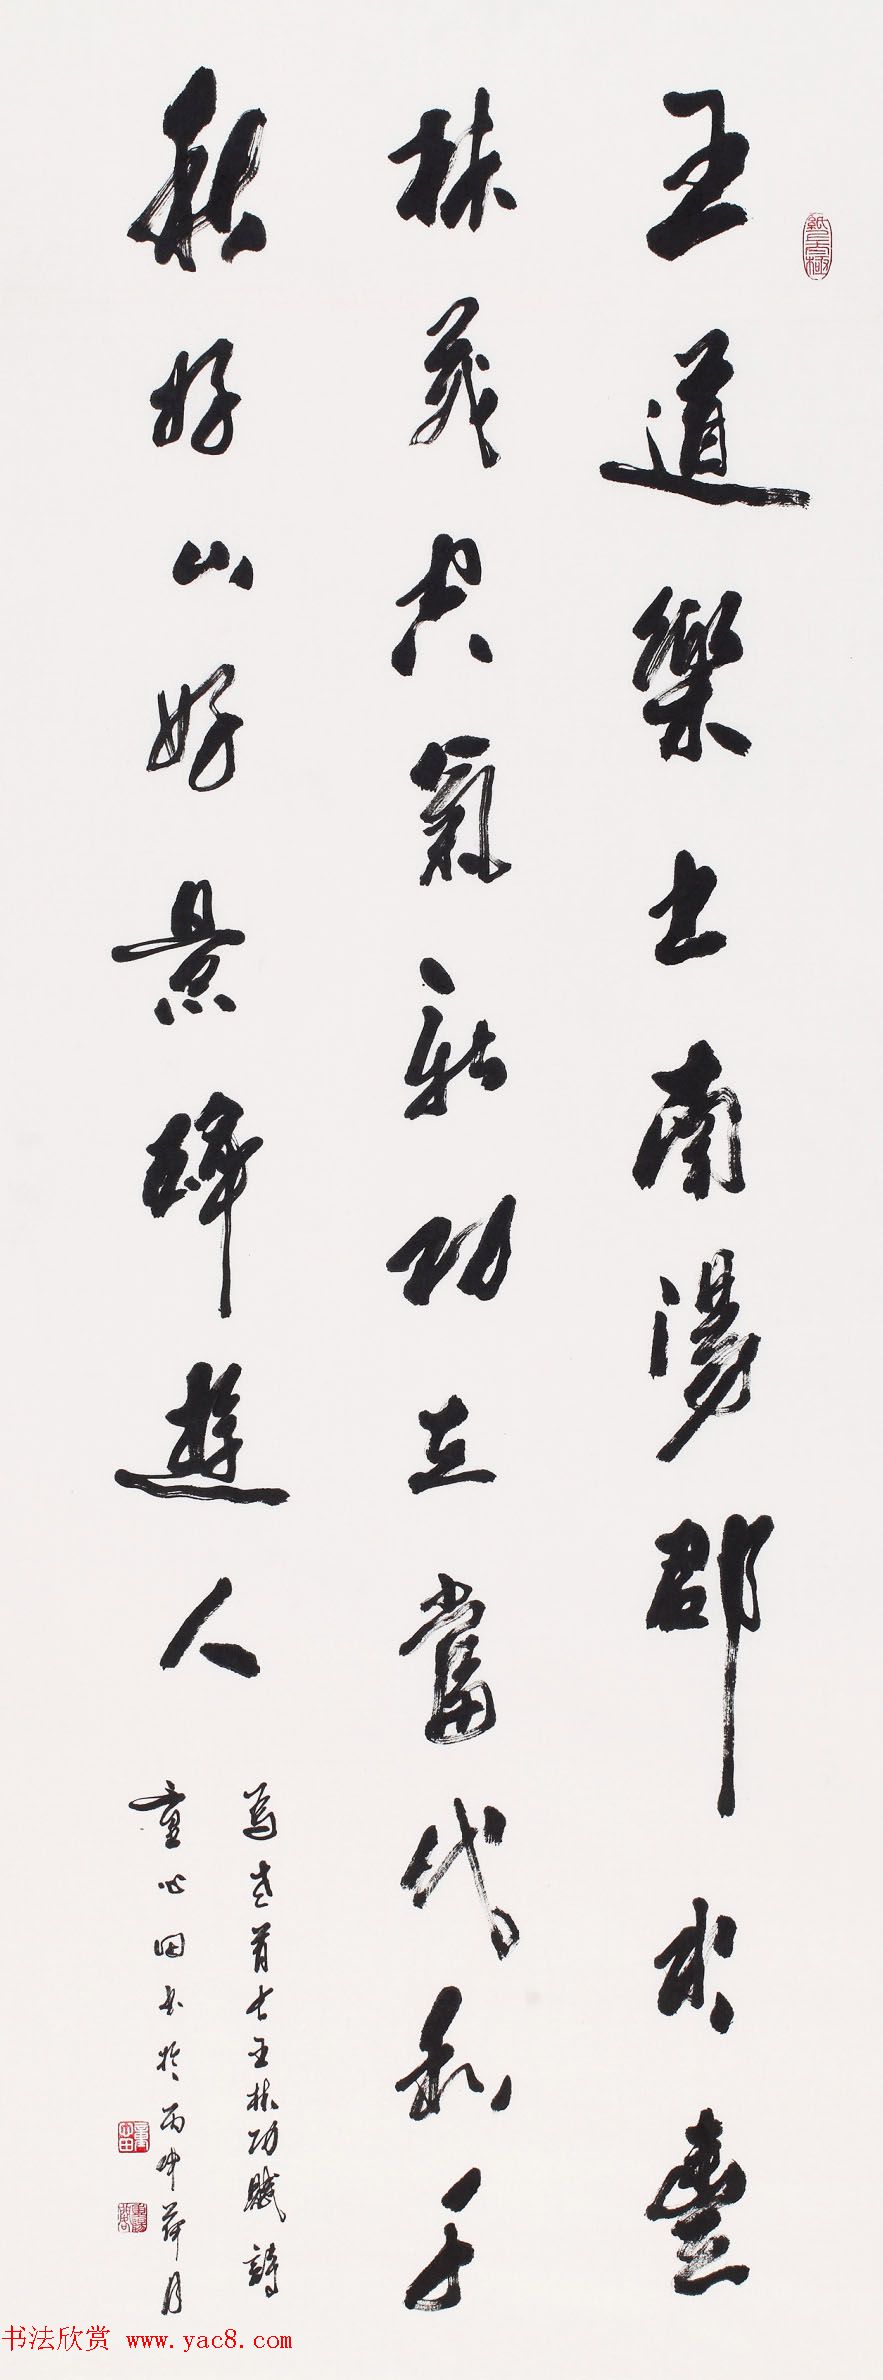 王道樂土南陽郡水豊
林茂空氣新功立當代利千
秋好山好景障遊人
為老首长王林功賦詩
童心田书於丙申荷月
书法欣赏 www.yac8.com